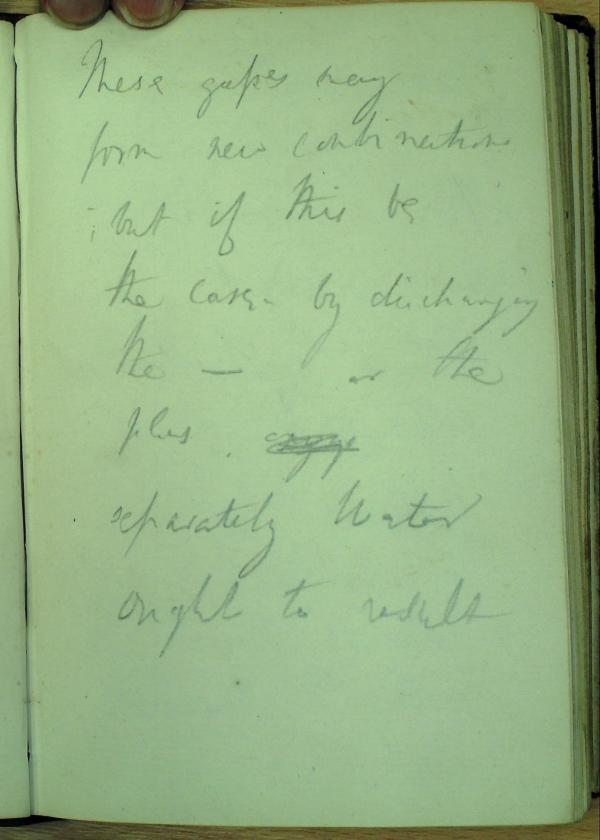 These gases may
form new combinations
; but if this be
the case - by discharging
the — or the
plus.
separately Water
ought to result